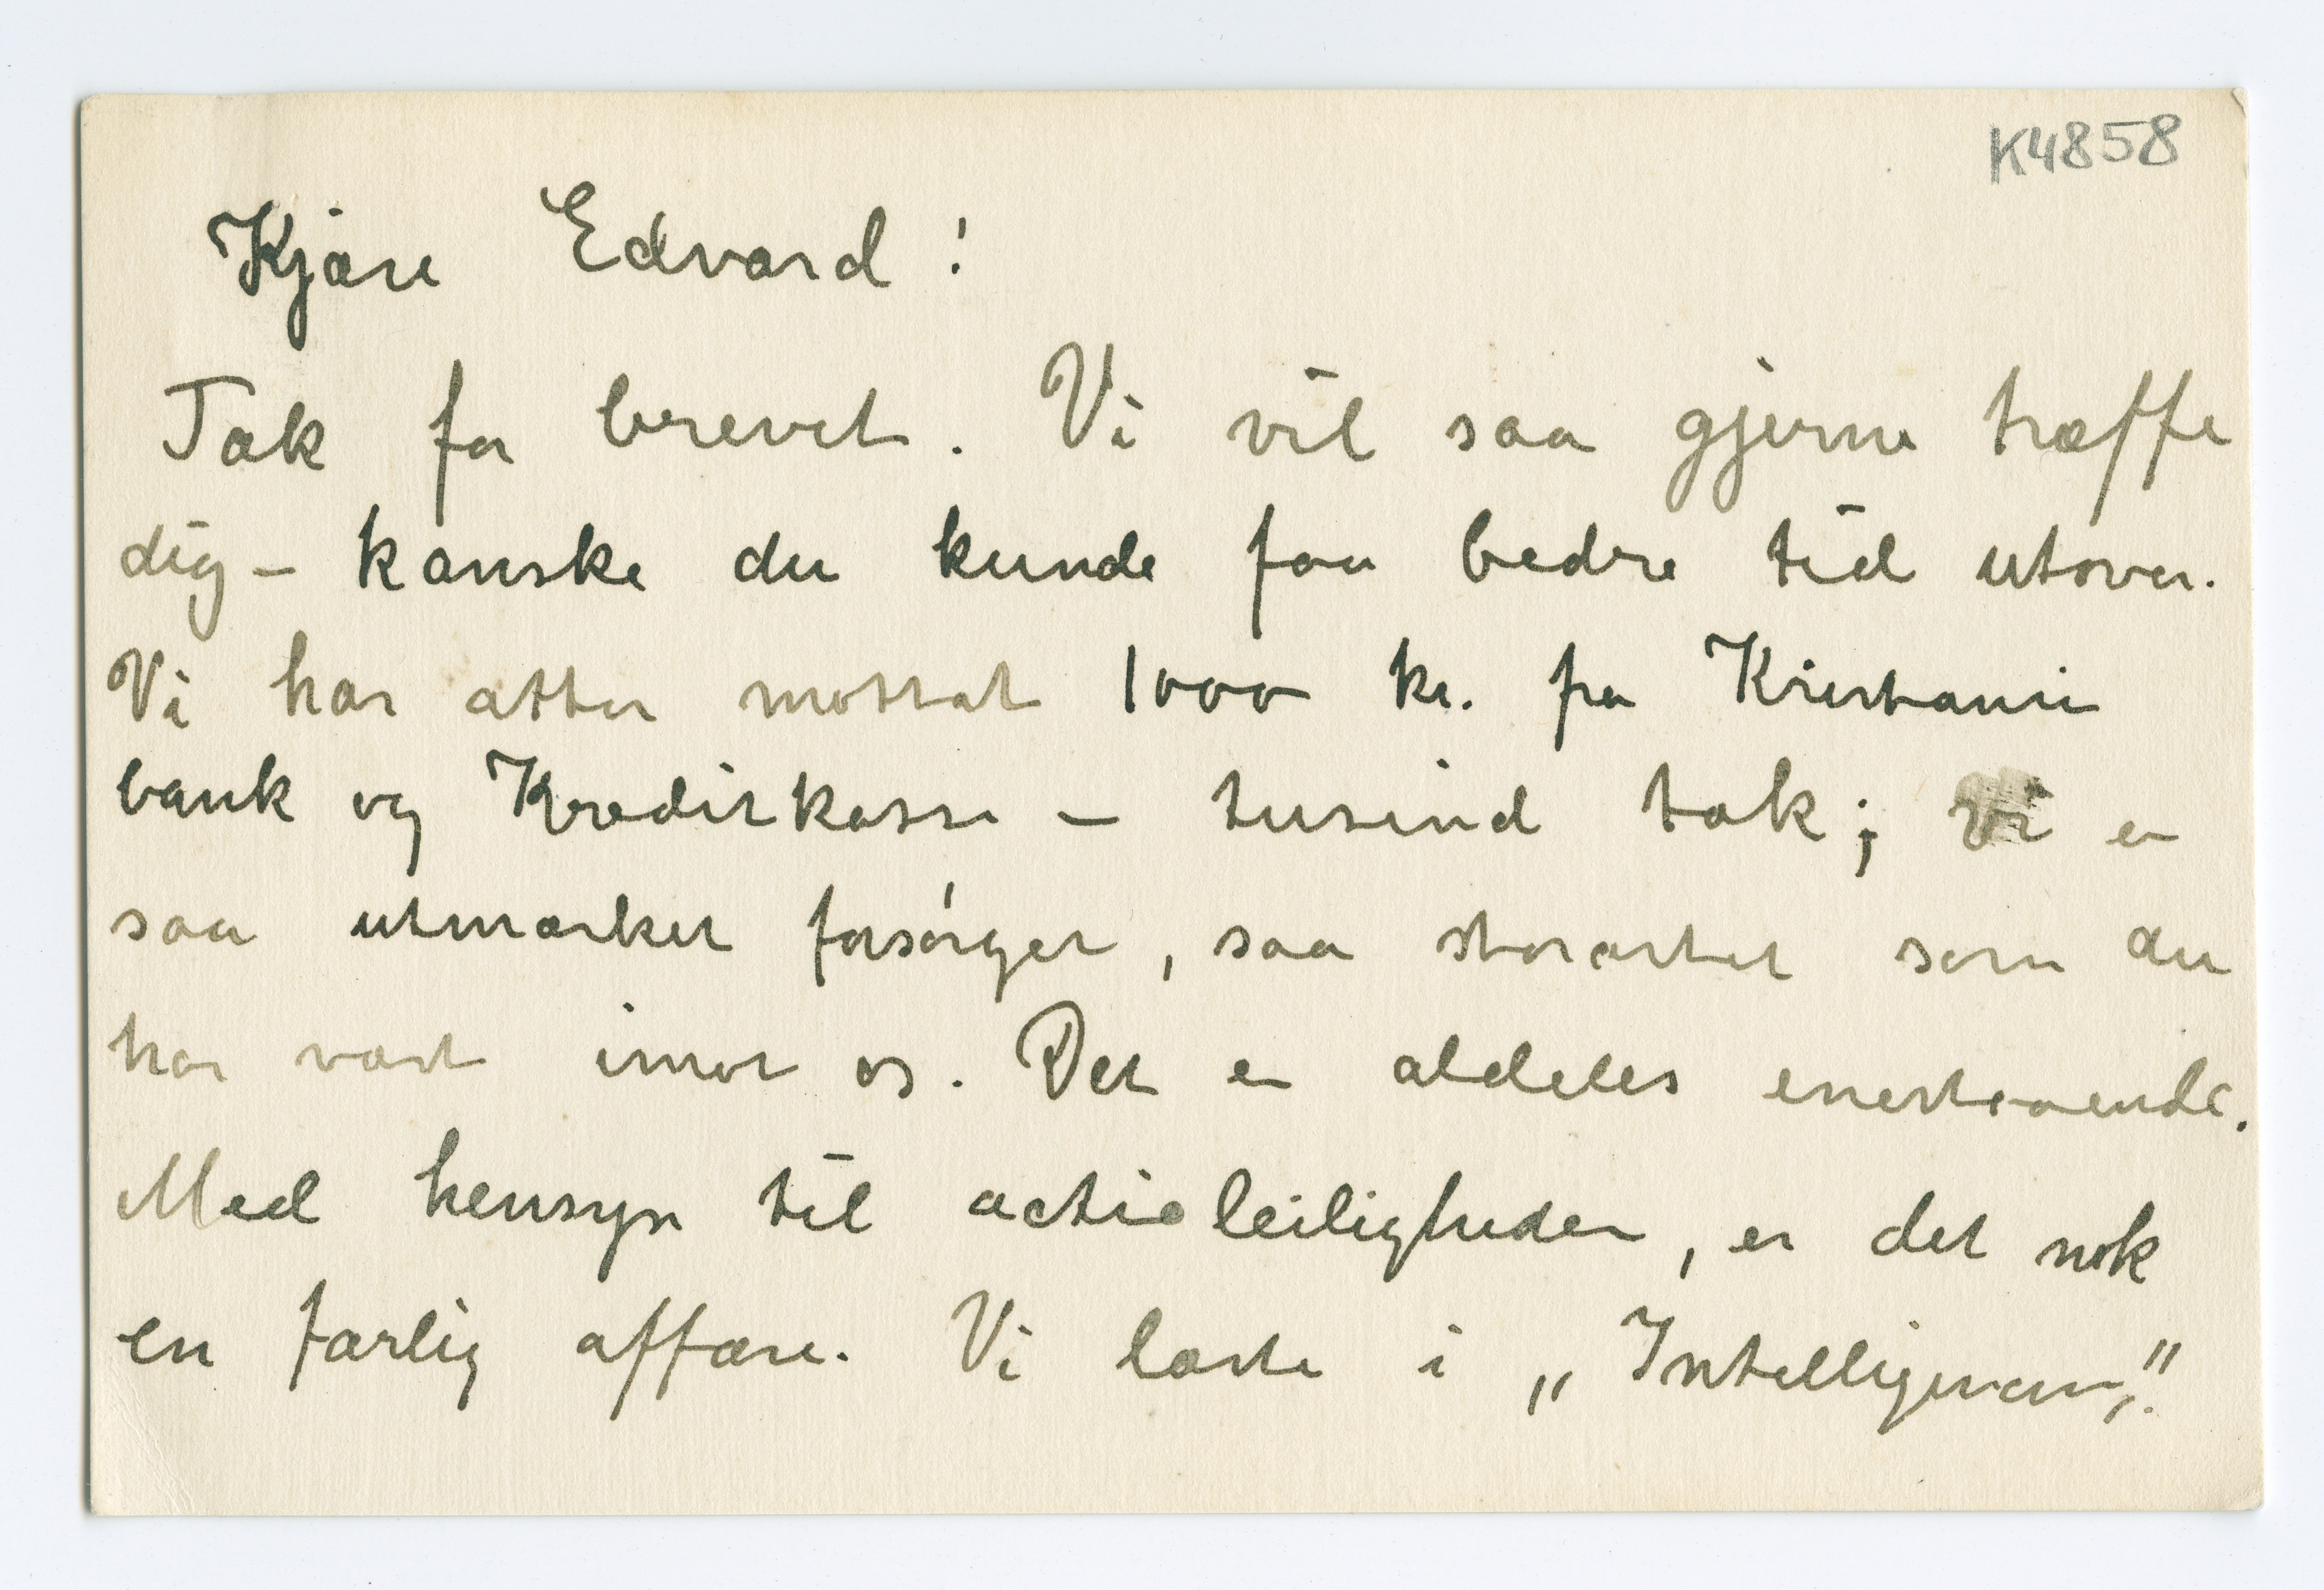 K4858
Kjære Edvard!
Tak for brevet. Vi vil saa gjerne træffe
dig – kanske du kunde faa bedre tid utover.
Vi har atter mottat 1000 kr. fra Kristiania
bank og Kreditkasse – tusind tak; vi er
saa utmærket forsørget, saa storartet som du
har været imot os. Det er aldeles enestaaende.
Med hensyn til actieleiligheden, er det nok
en farlig affære. Vi læste i „Intelligensen".